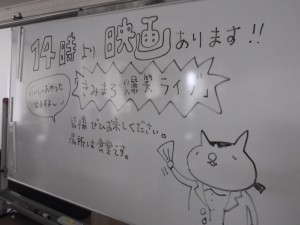 14時より映画あります!!
「きみまろ爆笑ライブ」
皆様ぜひお楽しください。
場所は食堂です。